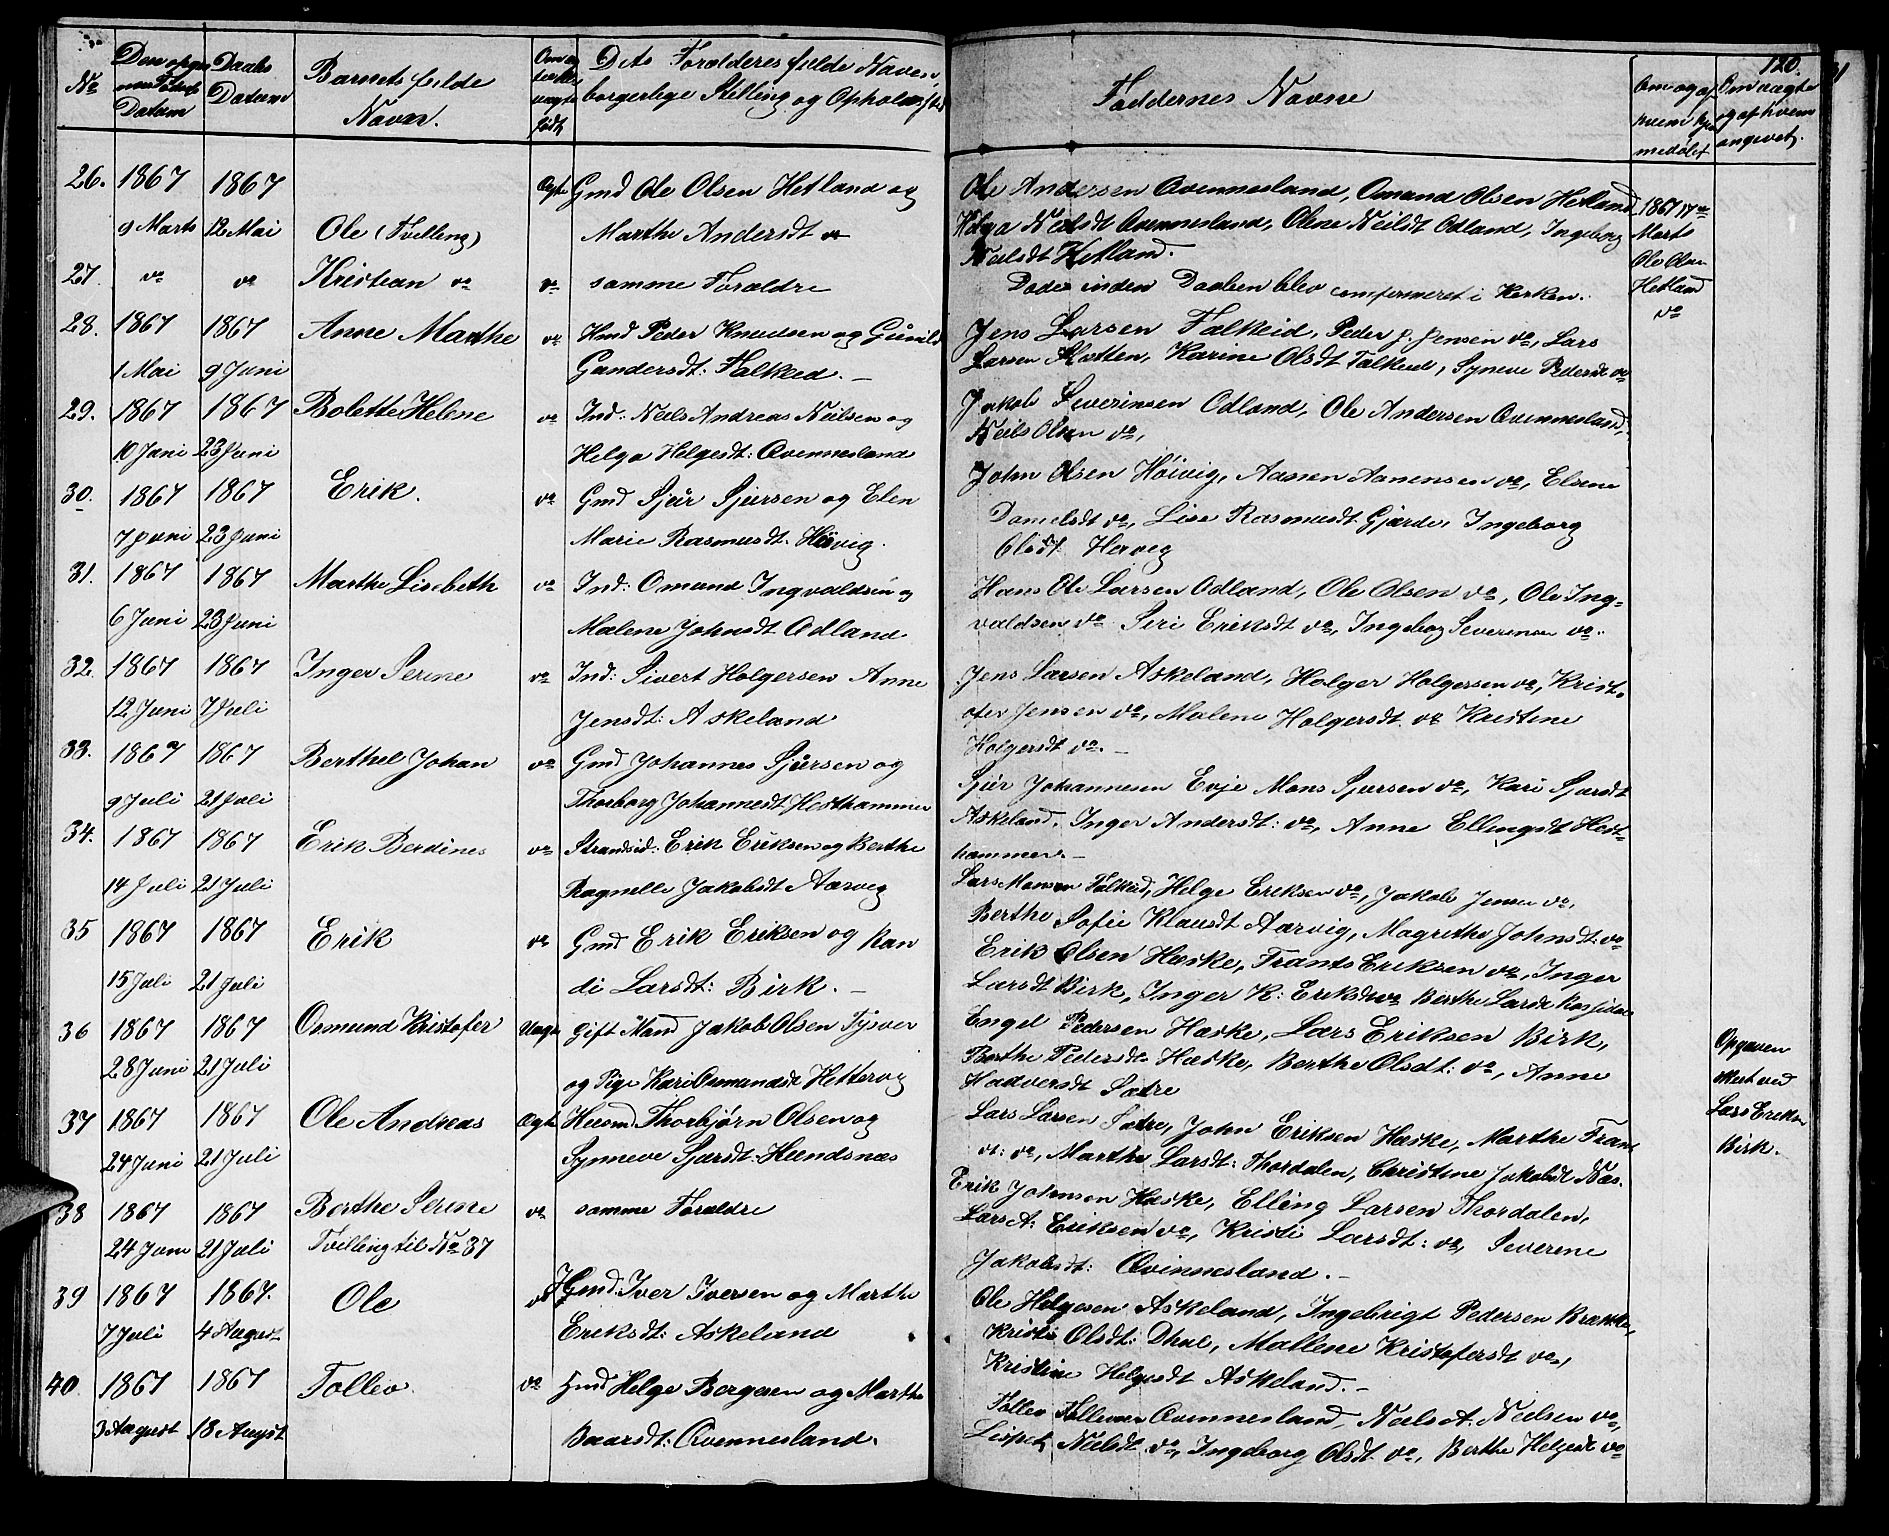 120.
No
Datum
Daabs
Datum
Barnets fulde
Navn.
Dets Forældres fulde Navn,
borgerlige Stilling og Opholdssted
Faddernes Navne
26. 1867 1867 Ægte Gmd Ole Olsen Hetland og
9 Marts 12 Mai Ole (Tvilling) Marthe Andersdt do
27. do do Kristian do do samme Forældre
28. 1867 1867 Anne Marthe do Hmd Peder Knudsen og Gunild
1 Mai 9 Juni Gundersdt: Falkeid. —
29. 1867 1867 Bolette Helene do Ind: Neils Andreas Neilsen og
10 Juni 23 Juni Helga Helgesdt: Qvennesland
30. 1867 1867 Erik. do Gmd Sjur Sjursen og Elen
7 Juni 23 Juni Marie Rasmusdt. Høivig.
31. 1867 1867 Marthe Lisebeth do Ind: Omund Ingvaldsen og
6 Juni 23 Juni Malene Johnsdt Odland
32. 1867 1867 Inger Serine do Ind: Sivert Holgersen Anne
12 Juni 7 Juli Jensdt: Askeland
33. 1867 1867 Berthel Johan do Gmd Johannes Sjursen og
9 Juli 21 Juli Thorborg Johannesdt Hesthammer
34. 1867 1867 Erik Berdines do Strandsid: Erik Eriksen og Berthe
14 Juli 21 Juli Ragnelle Jakobsdt Aarvig
35 1867 1867 Erik do Gmd Erik Eriksen og Ran
15 Juli 21 Juli di Larsdt: Birk. —
36 1867 1867 Osmund Kristofer Uægte Gift Mand Jakob Olsen Tysver
28 Juni 21 Juli og Pige Kari Osmundsdt Hettervig
37 1867 1867 Ole Andreas Ægte Huusm Thorbjørn Olsen og
24 Juni 21 Juli Synneve Sjursdt: Hundsnæs
38 1867 1867 Berthe Serine do samme Forældre
24 Juni 21 Juli Tvilling til No 37
39 1867 1867. Ole do Gmd. Iver Iversen og Marthe
7 Juli 4 August Eriksdt: Askeland
40. 1867 1867 Tollev. do Gmd Helge Bergesen og Marthe
3 August 18 August Baarsdt: Qvennesland.
Ole Andersen Qvennesland, Omund Olsen Hetland
Helga Neilsdt Qvennesland, Olene Neilsdt Odland, Ingeborg
Neilsdt Hetland.
inden Daaben blev confirmeret i Kirken.
Jens Larsen Falkeid, Peder J. Jensen do, Lars
Larsen Slotten, Karine Olsdt Falkeid, Syneve Pedersdt do
Jakob Severinsen Odland, Ole Andersen Qvennesland,
Neils Olsen do,
John Olsen Høivig, Aanen Aanensen do, Elsene
Danielsdt do, Lise Rasmusdt Gjerde, Ingeborg
Olsdt Høivig
Hans Ole Larsen Odland, Ole Olsen do, Ole Ing-
valdsen do Siri Eriksdt do, Ingeborg Severinsen do.
Jens Larsen Askeland, Holger Holgersen do, Krist-
ofer Jensen do, Malene Holgersdt do Kristine
Holgersdt do. —
Sjur Johannesen Evje Mons Sjursen do, Kari Sjursdt
Askeland. Inger Andersdt: do, Anne Ellingsdt Hest-
hammer. —
Lars Monsen Falkeid, Helge Eriksen do, Jakob Jensen do,
Berthe Sofie Klausdt Aarvig, Magrethe Johnsdt do
Erik Olsen Hæske, Frants Eriksen do, Inger
Larsdt Birk, Inger K: Eriksdt do Berthe Larsdt
Engel Pedersen Hæske, Lars Eriksen Birk,
Berthe Pedersdt Hæske, Berthe Olsdt: do, Anne
Hadversdt Sætre
Lars Larsen Sætre, John Eriksen Hæske, Marthe
do, Marthe Larsdt: Thordalen, Christine Jakobsdt Næs.
Erik Johnson Hæske, Elling Larsen Thordalen,
Lars A: Eriksen do, Kristi Larsdt: do, Severene
Jakobsdt: Qvinnesland. —
Ole Helgesen Askeland, Ingebrigt Pedersen
Kristi Olsdt: Dhue, Mallene Kristofersdt do,
Kristine Helgesdt Askeland. —
Tollev Tollevsen Qvennesland, Neils A. Neilsen do,
Lispet Neilsdt do, Ingeborg Olsdt do, Berthe Helgesdt do
1867 17de
Marts
Ole Olsen
Hetland
do
Opgaven
skeet ved
Lars Eriksen
Birk.